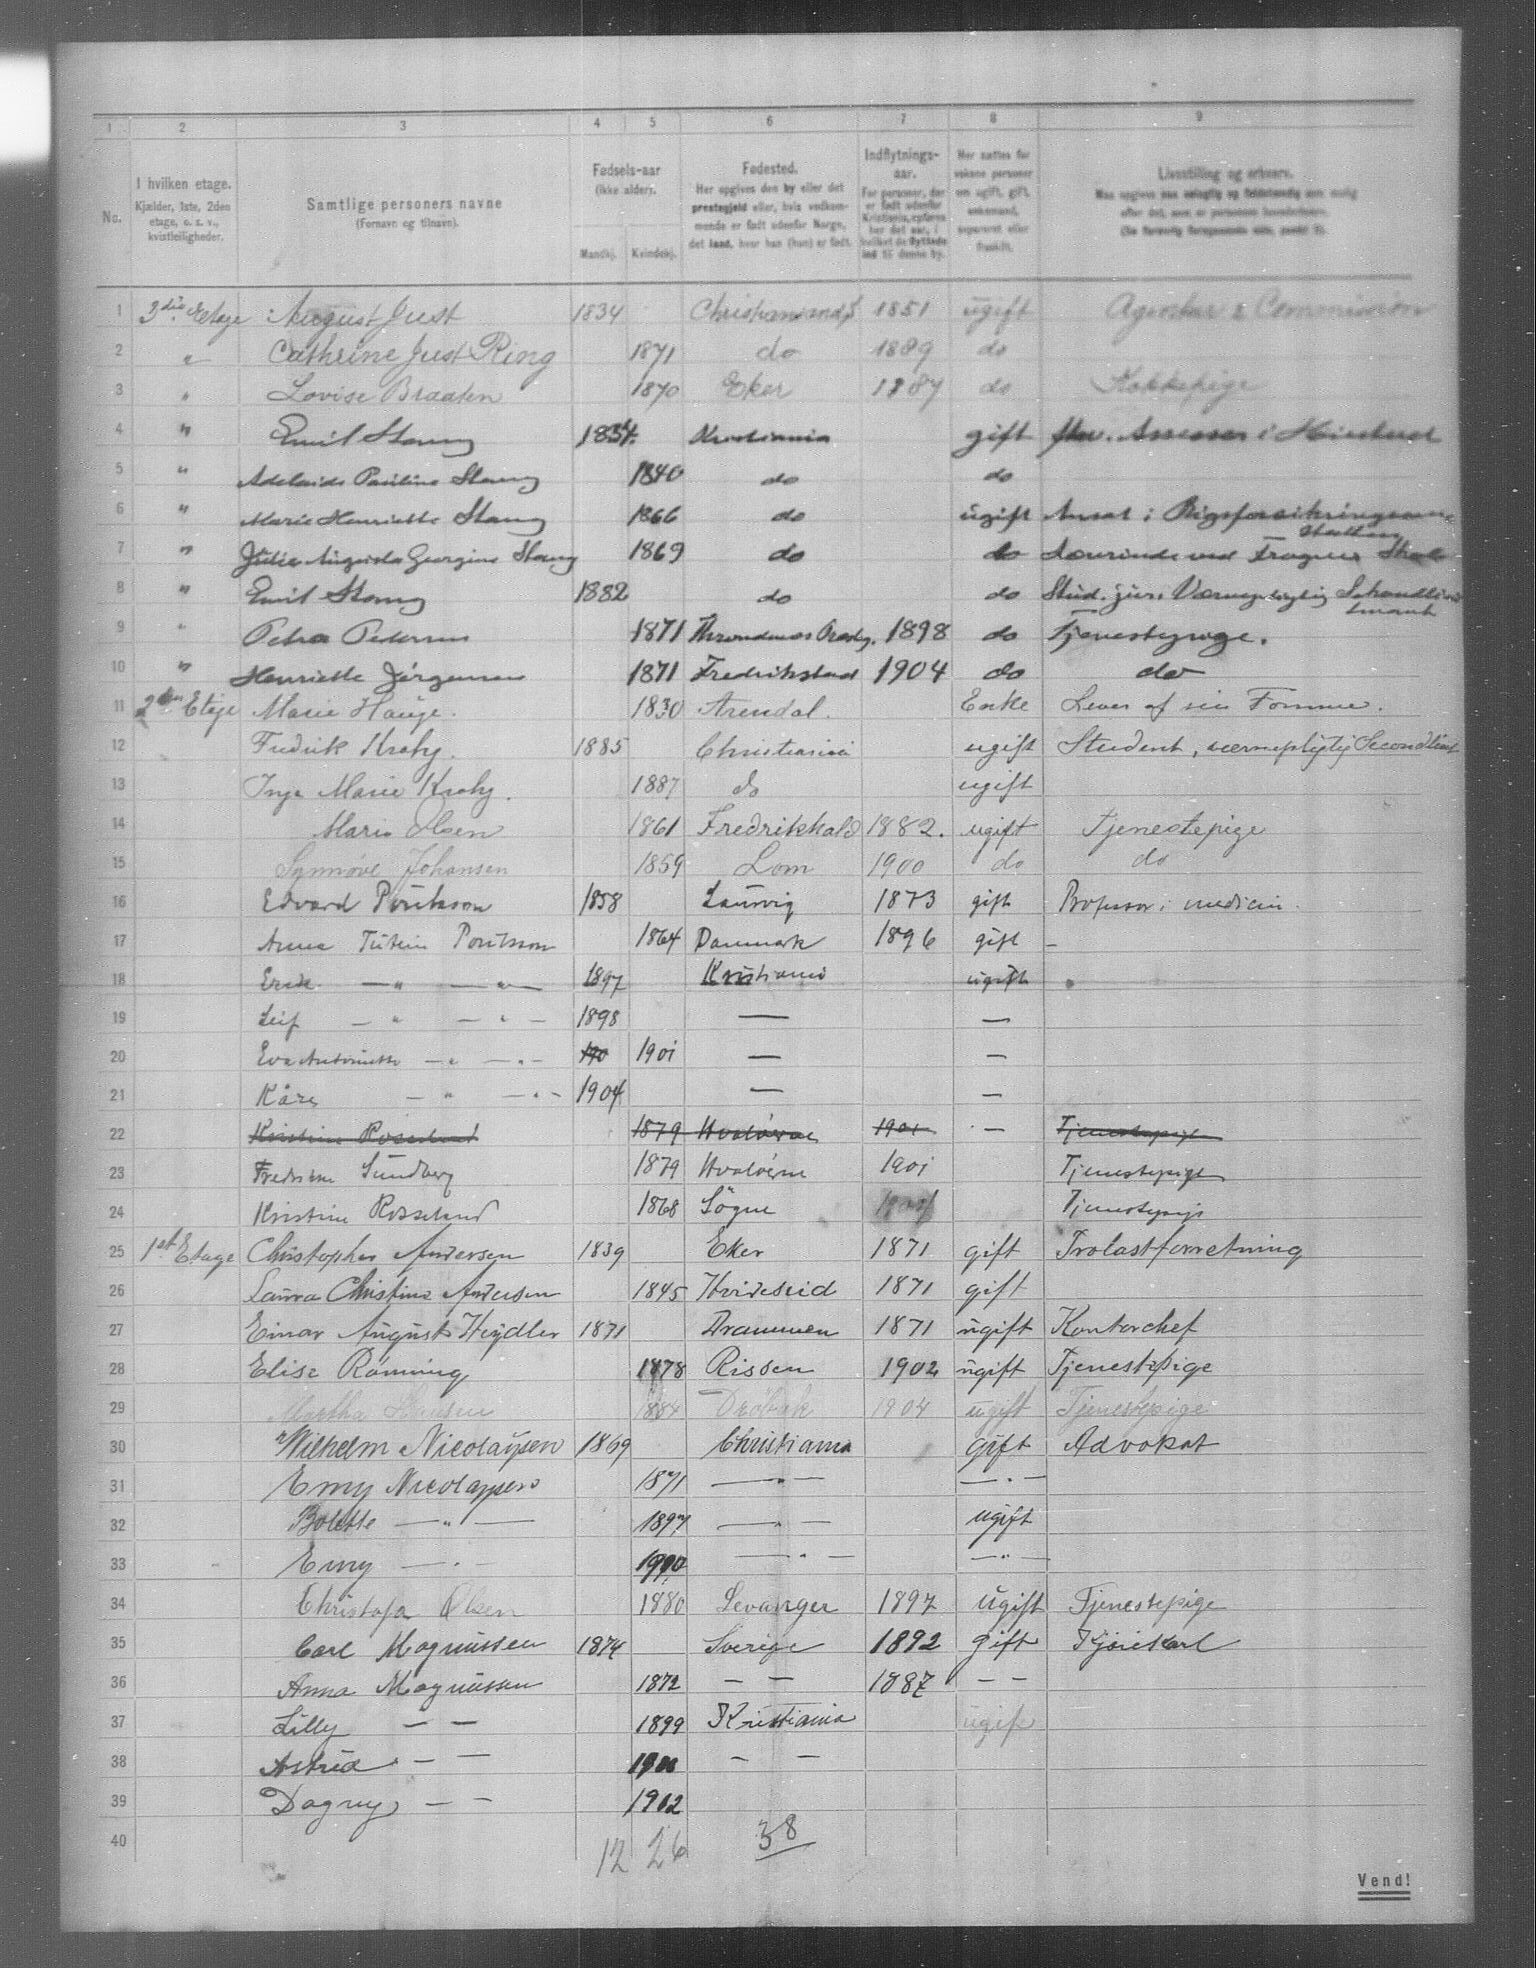 1 2 3 4 5 6 7 8 9
No. I hvilken etage. Kjælder, 1ste, 2den etage, o. s. v., kvistleiligheder. Samtlige personers navne (Fornavn og tilnavn). Fødsels-aar (ikke alder). Mandkj. Kvindekj. Fødested. Her opgives den by eller det prestegjeld eller, hvis vedkommende er født udenfor Norge, det land, hvor han (hun) er født. Indflytnings-aar. For personer, der er født udenfor Kristiania, opføres her det aar, i hvilket de flyttede ind til denne by. Her sættes for voksne personer om ugift, gift, enkemand, separeret eller fraskilt. Livsstilling og erhverv.
1 3die Etage August Just 1834 Christianssund 1851 ugift Agentur & Commission
2 " Cathrine Just Ring 1871 do 1889 do
3 " Lovise Braaten 1870 Eker 1887 do Kokkepige
4 " Emil Stang 1834. Kristiania gift fhv. Assessor i Høiesteret
5 " Adelaide Pauline Stang 1840 do do
6 " Marie Henriette Stang 1866 do ugift Ansat i Rigsforsikringsanstalten
7 " Julie Augusta Georgine Stang 1869 do do Lærerinde ved Fragner Skole
8 " Emil Stang 1882 do do Stud. jur. Værnepligtig
9 " Petra Petersen 1871 1898 do Tjenestepige.
10 " Henriette Jørgensen 1871 Fredrikstad 1904 do do
11 2den Etage Marie Hauge. 1830 Arendal. Enke Lever af sin Formue.
12 Fredrik Krohg. 1885 Christiania ugift Student, værnepligtig Secondlint
13 Inga Marie Krohg. 1887 do ugift
14 Marie Olsen 1861 Fredrikhald 1882. ugift Tjenestepige
15 Synnøve Johansen 1859 Lom 1900 do do
16 Edvard Poulsson 1858 Laurvig 1873 gift Professor i medicin.
17 Anna Tutein Poulsson 1864 Danmark 1896 gift –
18 Erik — " — " — 1897 Kristiania ugift "
19 Leif — " — " — 1898 — —
20 Eva Antoinette — " — " — 190 1901 — —
21 Kåre — " — " — 1904 — —
22 Kristine Rosseland 1879 Hvaløerne 1901 — Tjenestepige
23 Fredrikke Sundberg 1879 Hvaløerne 1901 Tjenestepige
24 Kristine Rosseland 1868 Søgne 1904 Tjenestepige
25 1st Etage Christopher Andersen 1839 Eker 1871 gift Trælastforretning
26 Laura Christine Andersen 1845 Hvideseid 1871 gift
27 Einar August Heydler 1871 Drammen 1871 ugift Kontorchef
28 Elise Rønning 1878 Rissen 1902 ugift Tjenestepige
29 Martha Hansen 1884 Drøbak 1904 ugift Tjenestepige
30 Wilhelm Nicolaysen 1869 Christiania gift Advokat
31 Emy Nicolaysen 1871 — " — — " —
32 Bolette — " — 1897 — " — ugift
33 Emy — " — 1900 — " — — " —
34 Christofa Olsen 1880 Levanger 1897 ugift Tjenestepige
35 Carl Magnussen 1874 Sverige 1892 gift Kjørekarl
36 Anna Magnussen 1872 — — 1887 — —
37 Lilly — — 1899 Kristiania ugift
38 Astrid — — 1900 — —
39 Dagny — — 1902
40
12 26 38
Vend!